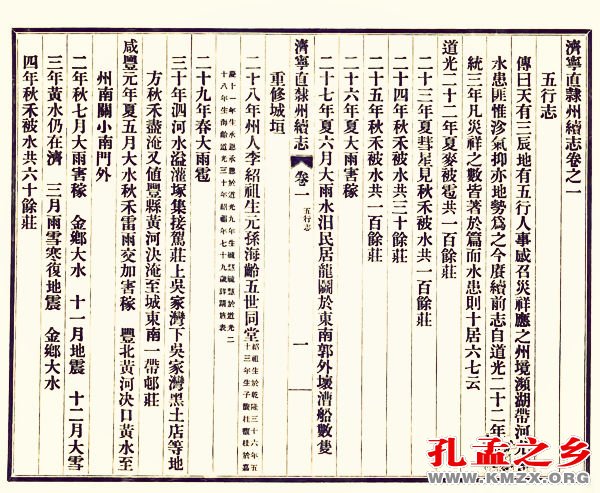 濟寧直隸州續志卷之一
五行志
傳曰天有三辰地有五行人事感召災祥應之州境瀕湖帶河
水患匪惟沴氣抑亦地勢為之今賡續前志自道光二十二年
統三年凡災祥之數皆著於篇而水患則十居六七云
道光二十二年夏麥被雹共一百餘莊
二十三年夏彗星見秋禾被水共一百餘莊
二十四年秋禾被水共三十餘莊
二十五年秋禾被水共一百餘莊
二十六年夏大雨害稼
二十七年夏六月大雨水汨民居龍鬬於東南郭外壞漕船數隻
濟寧直隸州續志 卷一 五行志 一
重修城垣
二十八年州人李紹祖生元孫海齡五世同堂
紹祖生於乾隆三十六年五
十三年生子殿柱殿柱於嘉
慶十一年生承恩承恩於道光九年生毓慧毓慧於道光二
十八年生海齡道光三十年紹祖年七十九歲詳請旌表
二十九年春大雨雹
三十年泗河水溢灌塚集接駕莊上吳家灣下吳家灣黑土店等地
方秋禾盡淹又值豐縣黃河決淹至城東南一帶邨莊
咸豐元年夏五月大水秋禾雷雨交加害稼 豐北黃河決口黃水至
州南關小南門外
二年秋七月大雨害稼 金鄉大水 十一月地震 十二月大雪
三年黃水仍在濟 三月雨雪寒復地震 金鄉大水
四年秋禾被水共六十餘莊
孔孟之乡
WWW.KMZX.ORG